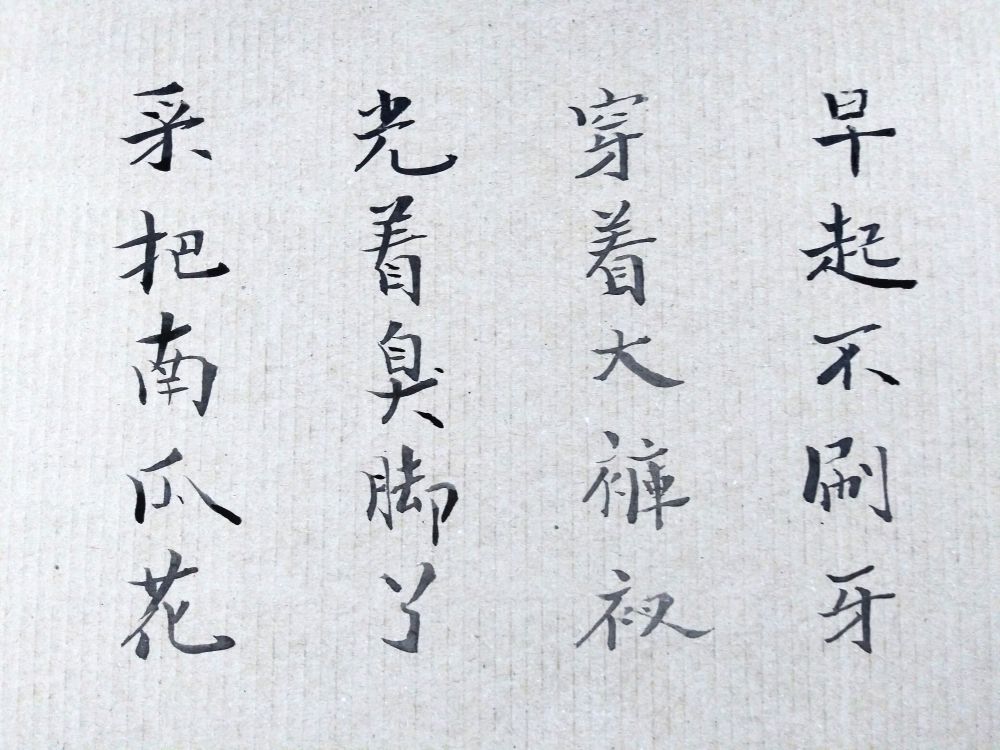 早起不刷牙
穿着大裤衩
光着臭脚丫
采把南瓜花